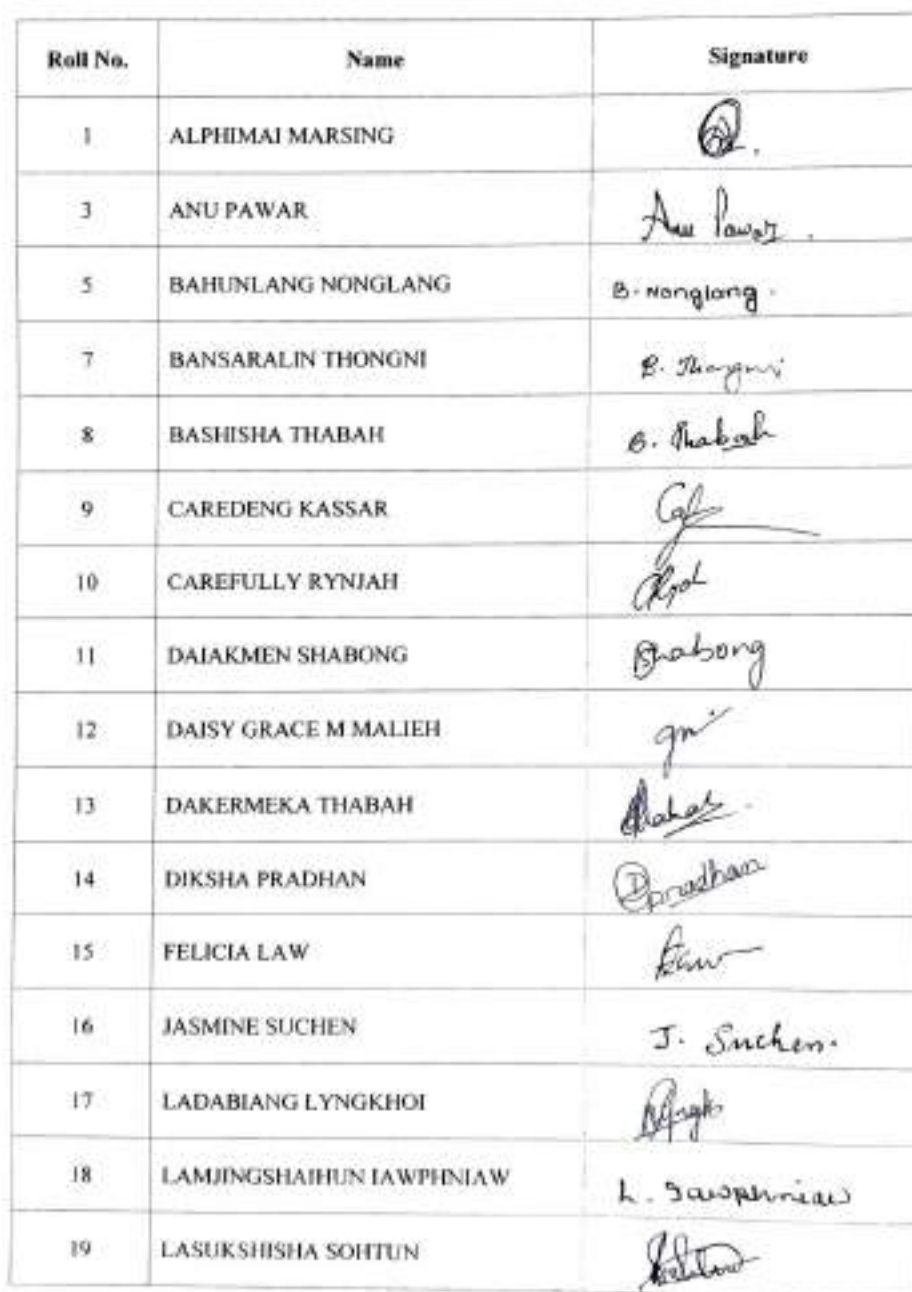 Roll No. Name Signature
1 ALPHIMAI MARSING
3 ANU PAWAR Anu Pawar.
5 BAHUNLANG NONGLANG B. Nonglang.
7 BANSARALIN THONGNI B. Thongni
8 BASHISHA THABAH B. Thabah
9 CAREDENG KASSAR
10 CAREFULLY RYNJAH
11 DAIAKMEN SHABONG Shabong
12 DAISY GRACE M MALIEH
13 DAKERMEKA THABAH
14 DIKSHA PRADHAN Dpradhan
15 FELICIA LAW
16 JASMINE SUCHEN J. Suchen.
17 LADABIANG LYNGKHOI
18 LAMJINGSHAIHUN IAWPHNIAW L. Iawphniaw
19 LASUKSHISHA SOHTUN